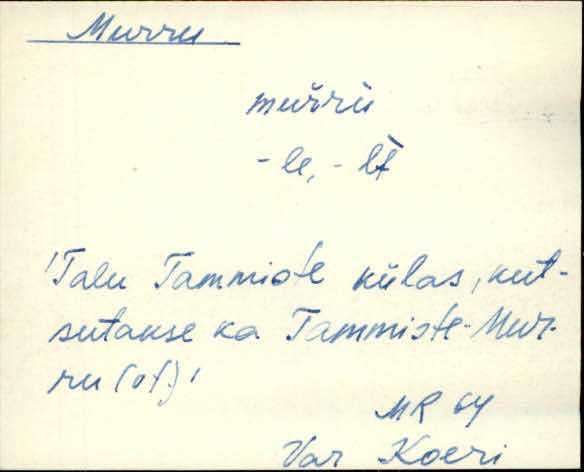 Murru
muřřù
-le, -lt
'Talu Tammiste külas, kut-
sutakse ka Tammiste-Mur-
ru (of)'
MR 64
Var Koeri